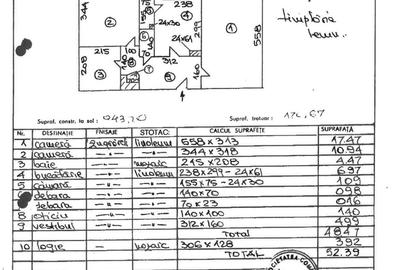 344
2
155
70
3
238
24x30
4
24x61
299
1
558
tâmplărie
lemn.
215
208
3
100
140
312
9
160
Supraf. constr. la sol : 943,20 Supraf. trotuar :
Nr. DESTINAȚIE FINISAJE STOTAC: CALCUL SUPRAFEȚE SUPRAFAȚĂ
1 cameră zugrăvit linoleum 558 x 313 17.47
2 cameră —"— —"— 344 x 318 10.94
3 baie —"— mozaic 215 x 208 4.47
4 bucătărie —"— linoleum 238 x 299 - 24x61 6.97
5 cămară —"— —"— 155 x 75 - 24x30 1.09
6 debara —"— —"— 140 x 70 098
7 debara —"— —"— 70 x 23 016
8 oficiu —"— —"— 140 x 100 1.40
9 vestibul —"— —"— 312 x 160 4.99
Total 48.47
10 logie — mozaic 306 x 128 3.92
TOTAL 52.39